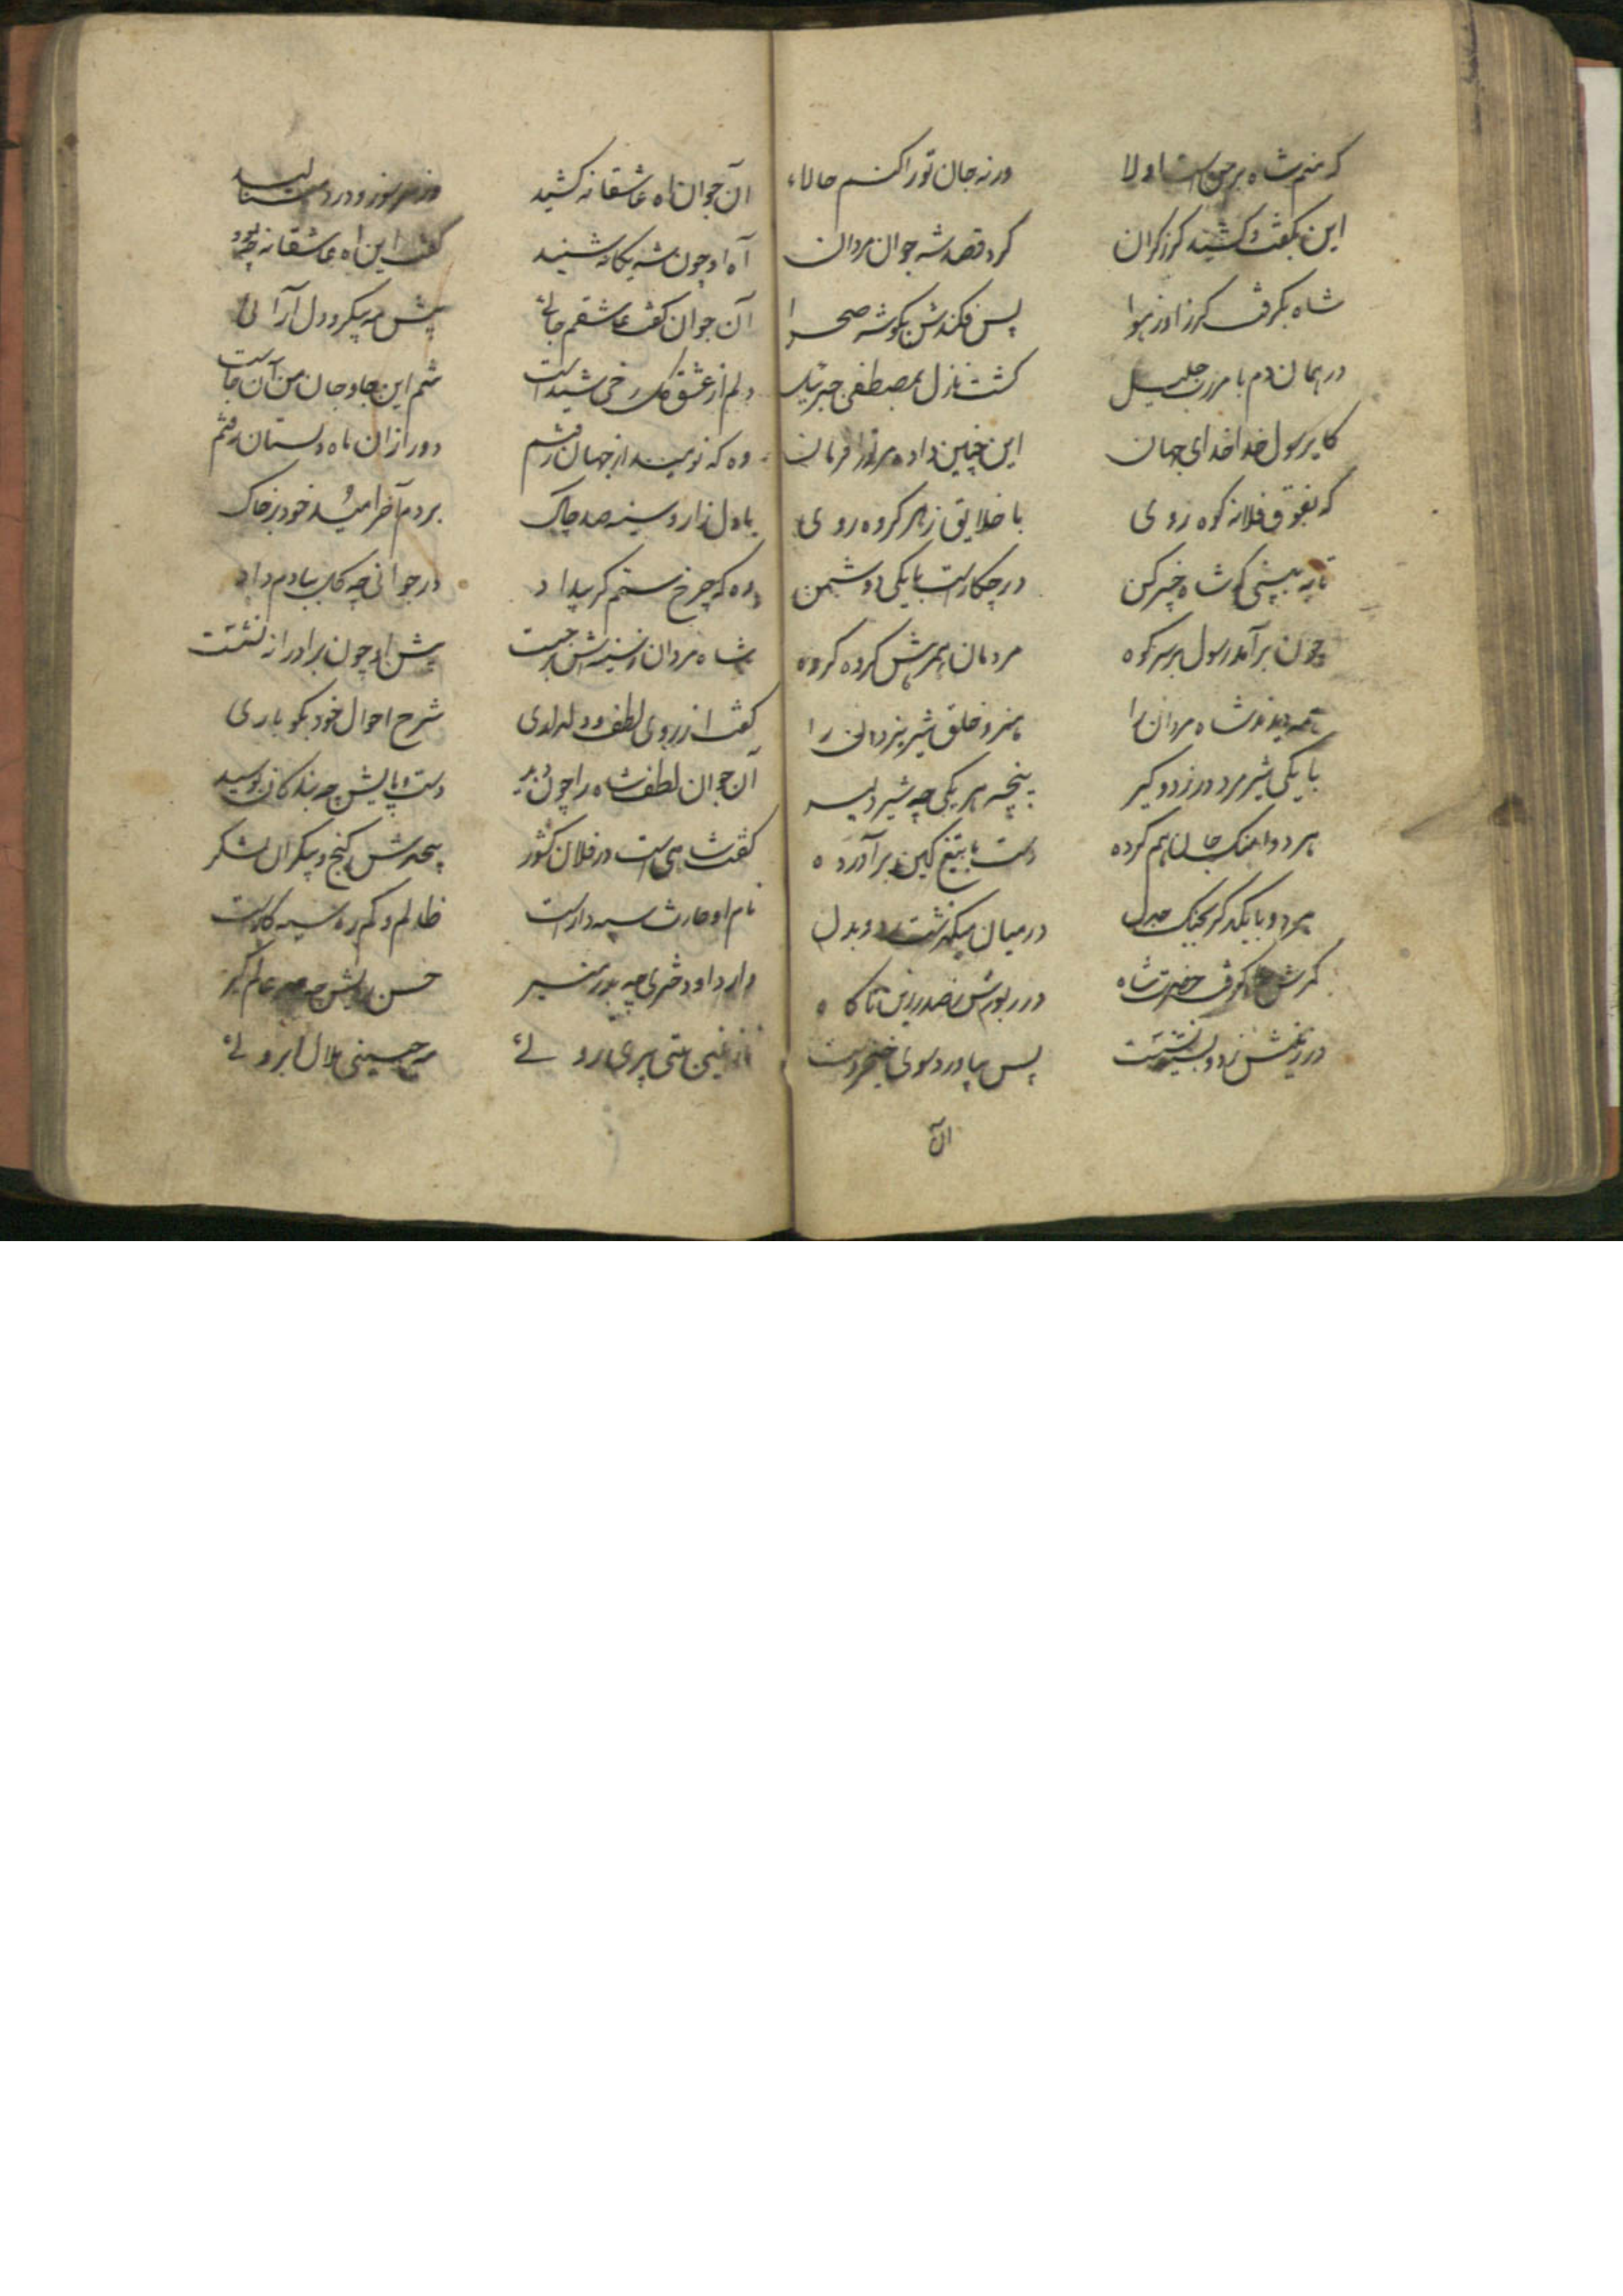 که منم شاه برحق است اولا ورنه جان تو را کنم حالا
این بگفت و کشید گرز گران کرد قصد شه جوان مردان
شاه بگرفت گرز او ز هوا پس فکندش بگوشه صحرا
در همان دم بامر رب جلیل گشت نازل بمصطفی جبرئیل
کای رسول خدا خدای جهان این چنین داده مر ترا فرمان
که بفوق فلانه کوه روی با خلایق ز هر گروه روی
تا به بینی که شاه خیبر کن در چکارست با یکی دشمن
چون برآمد رسول بر سر کوه مردمان همرهش گروه گروه
همه دیدند شاه مردان را هنر و خلق شیر یزدان را
با یکی شیر مرد در زد و گیر پنجه هر یکی چه شیر دلیر
هر دو آهنگ جان هم کرده دست با تیغ کین برآورده
هر دو با یکدگر بجنگ و جدل در میان میگذشت رد و بدل
کمرش گرفت حضرت شاه در ربودش ز صدر زین ناگاه
در زمینش زد و بسینه نشست پس بیاورد سوی خنجر دست
آن
آن جوان آه عاشقانه کشید وز سر سوز و درد نالید
آه او چون شه یگانه شنید گفت این آه عاشقانه چه بود
آن جوان گفت عاشقم جائی پیش مه پیکر و دل آرائی
دلم از عشق گل رخی شیداست تنم اینجا و جان من آن جاست
وه که نومید از جهان رفتم دور از آن ماه دلستان رفتم
با دل زار و سینه صد چاک بردم آخر امید خود بر خاک
وه که چرخ ستم گر بیداد در جوانی چه گل ببادم داد
شاه مردان ز سینه اش برجست پیش او چون برادرانه نشست
گفت از روی لطف و دلداری شرح احوال خود بگو باری
آن جوان لطف شاه را چون دید دست و پایش چه بندگان بوسید
گفت شاهی است در فلان کشور بیحدش گنج و بیکران لشکر
نام او حارث سپه دارست ظالم و گم ره سیه کارست
دارد او دختری چه بدر منیر حسن رویش چه مهر عالم گیر
نازنین بتی پری روئی مه جبینی هلال ابروئی